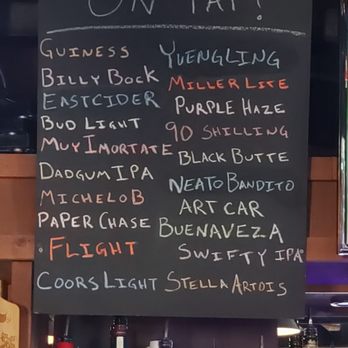 ON TAP!
GUINESS
BILLY BOCK
EASTCIDER
BUD LIGHT
MUY IMORTATE
DADGUM IPA
MICHELOB
PAPER CHASE
FLIGHT
COORS LIGHT
YUENGLING
MILLER LITE
PURPLE HAZE
90 SHILLING
BLACK BUTTE
NEATO BANDITO
ART CAR
BUENAVEZA
SWIFTY IPA
STELLA ARTOIS